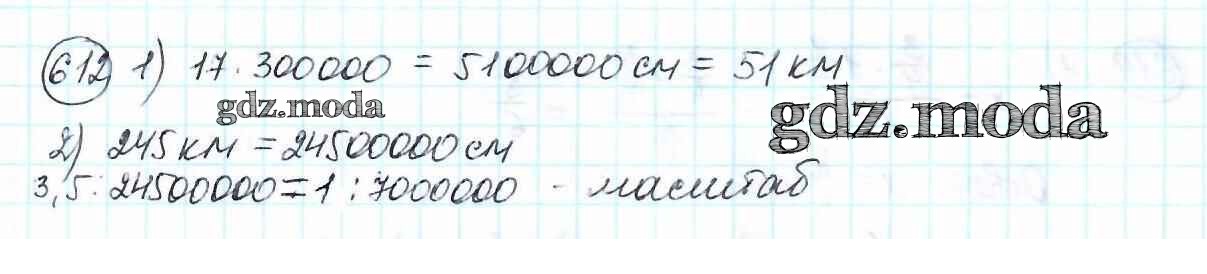 612 1) 17 · 300000 = 5100000 см = 51 км
gdz.moda
gdz.moda
2) 245 км = 24500000 см
3,5 : 24500000 = 1 : 7000000 - масштаб